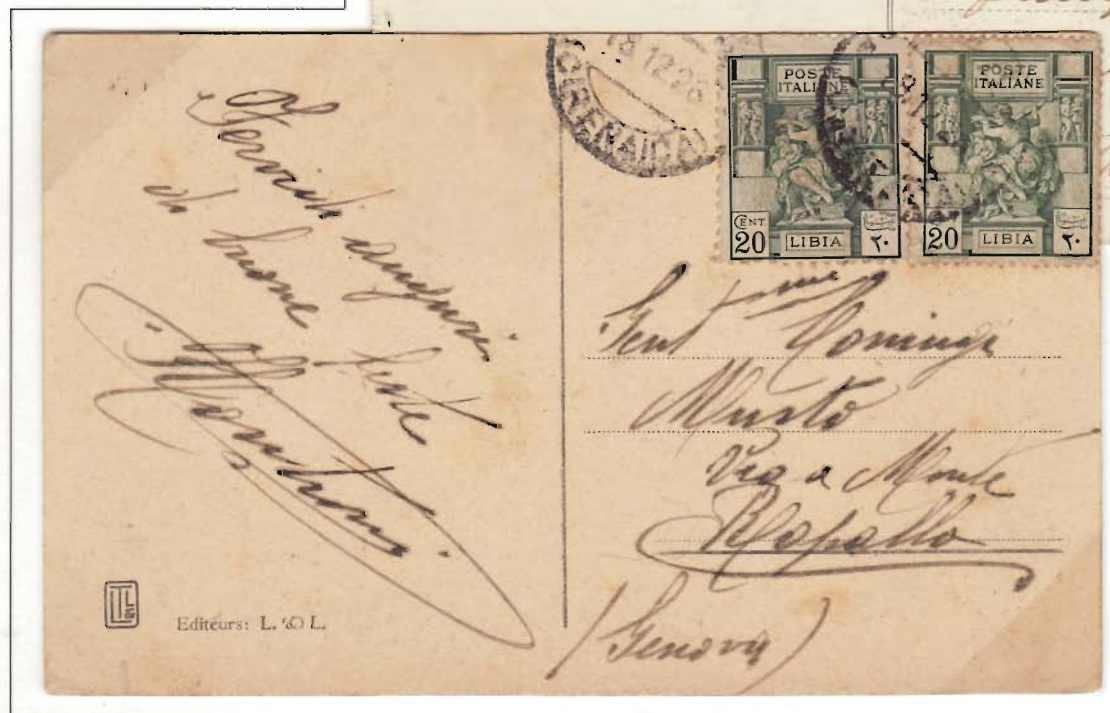 Fervidi auguri
di buone feste
Editeurs: L. & L.
18.12.26
(CIRENAICA)
POSTE
ITALIANE
CENT
20
LIBIA
٢٠
POSTE
ITALIANE
20
LIBIA
٢٠
Gent.me
Musto
Via a Monte
Rapallo
(Genova)